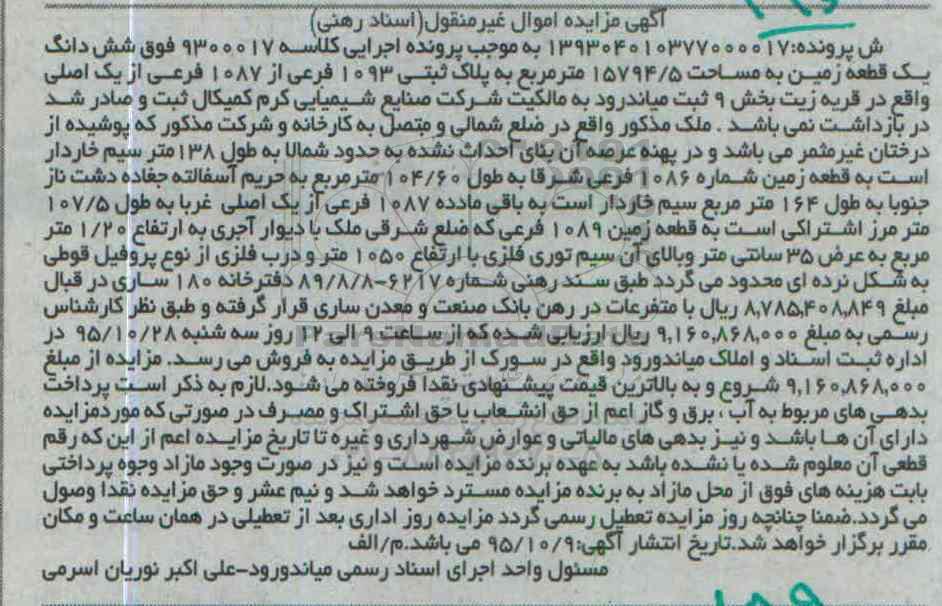 آگهی مزایده اموال غیرمنقول(اسناد رهنی)
ش پرونده:۱۳۹۳۰۴۰۱۰۳۷۷۰۰۰۰۱۷ به موجب پرونده اجرایی کلاسه ۹۳۰۰۰۱۷ فوق شش دانگ
یک قطعه زمین به مساحت ۱۵۷۹۴/۵ مترمربع به پلاک ثبتی ۱۰۹۳ فرعی از ۱۰۸۷ فرعی از یک اصلی
واقع در قریه زیت بخش ۹ ثبت میاندرود به مالکیت شرکت صنایع شیمیایی کرم کمیکال ثبت و صادر شد
در بازداشت نمی باشد . ملک مذکور واقع در ضلع شمالی و متصل به کارخانه و شرکت مذکور که پوشیده از
درختان غیرمثمر می باشد و در پهنه عرصه آن بنای احداث نشده به حدود شمالا به طول ۱۳۸متر سیم خاردار
است به قطعه زمین شماره ۱۰۸۶ فرعی شرقا به طول ۱۰۴/۶۰ مترمربع به حریم آسفالته جغاده دشت ناز
جنوبا به طول ۱۶۴ متر مربع سیم خاردار است به باقی مادده ۱۰۸۷ فرعی از یک اصلی غربا به طول ۱۰۷/۵
متر مرز اشتراکی است به قطعه زمین ۱۰۸۹ فرعی که ضلع شرقی ملک با دیوار آجری به ارتفاع ۱/۲۰ متر
مربع به عرض ۳۵ سانتی متر وبالای آن سیم توری فلزی با ارتفاع ۱۰۵۰ متر و درب فلزی از نوع پروفیل قوطی
به شکل نرده ای محدود می گردد طبق سند رهنی شماره ۶۲۱۷-۸۹/۸/۸ دفترخانه ۱۸۰ ساری در قبال
مبلغ ۸,۷۸۵,۴۰۸,۸۴۹ ریال با متفرعات در رهن بانک صنعت و معدن ساری قرار گرفته و طبق نظر کارشناس
رسمی به مبلغ ۹,۱۶۰,۸۶۸,۰۰۰ ریال ارزیابی شده که از ساعت ۹ الی ۱۲ روز سه شنبه ۹۵/۱۰/۲۸ در
اداره ثبت اسناد و املاک میاندورود واقع در سورک از طریق مزایده به فروش می رسد. مزایده از مبلغ
۹,۱۶۰,۸۶۸,۰۰۰ شروع و به بالاترین قیمت پیشنهادی نقدا فروخته می شود.لازم به ذکر است پرداخت
بدهی های مربوط به آب ، برق و گاز اعم از حق انشعاب یا حق اشتراک و مصرف در صورتی که موردمزایده
دارای آن ها باشد و نیز بدهی های مالیاتی و عوارض شهرداری و غیره تا تاریخ مزایده اعم از این که رقم
قطعی آن معلوم شده یا نشده باشد به عهده برنده مزایده است و نیز در صورت وجود مازاد وجوه پرداختی
بابت هزینه های فوق از محل مازاد به برنده مزایده مسترد خواهد شد و نیم عشر و حق مزایده نقدا وصول
می گردد.ضمنا چنانچه روز مزایده تعطیل رسمی گردد مزایده روز اداری بعد از تعطیلی در همان ساعت و مکان
مقرر برگزار خواهد شد.تاریخ انتشار آگهی:۹۵/۱۰/۹ می باشد.م/الف
مسئول واحد اجرای اسناد رسمی میاندورود-علی اکبر نوریان اسرمی